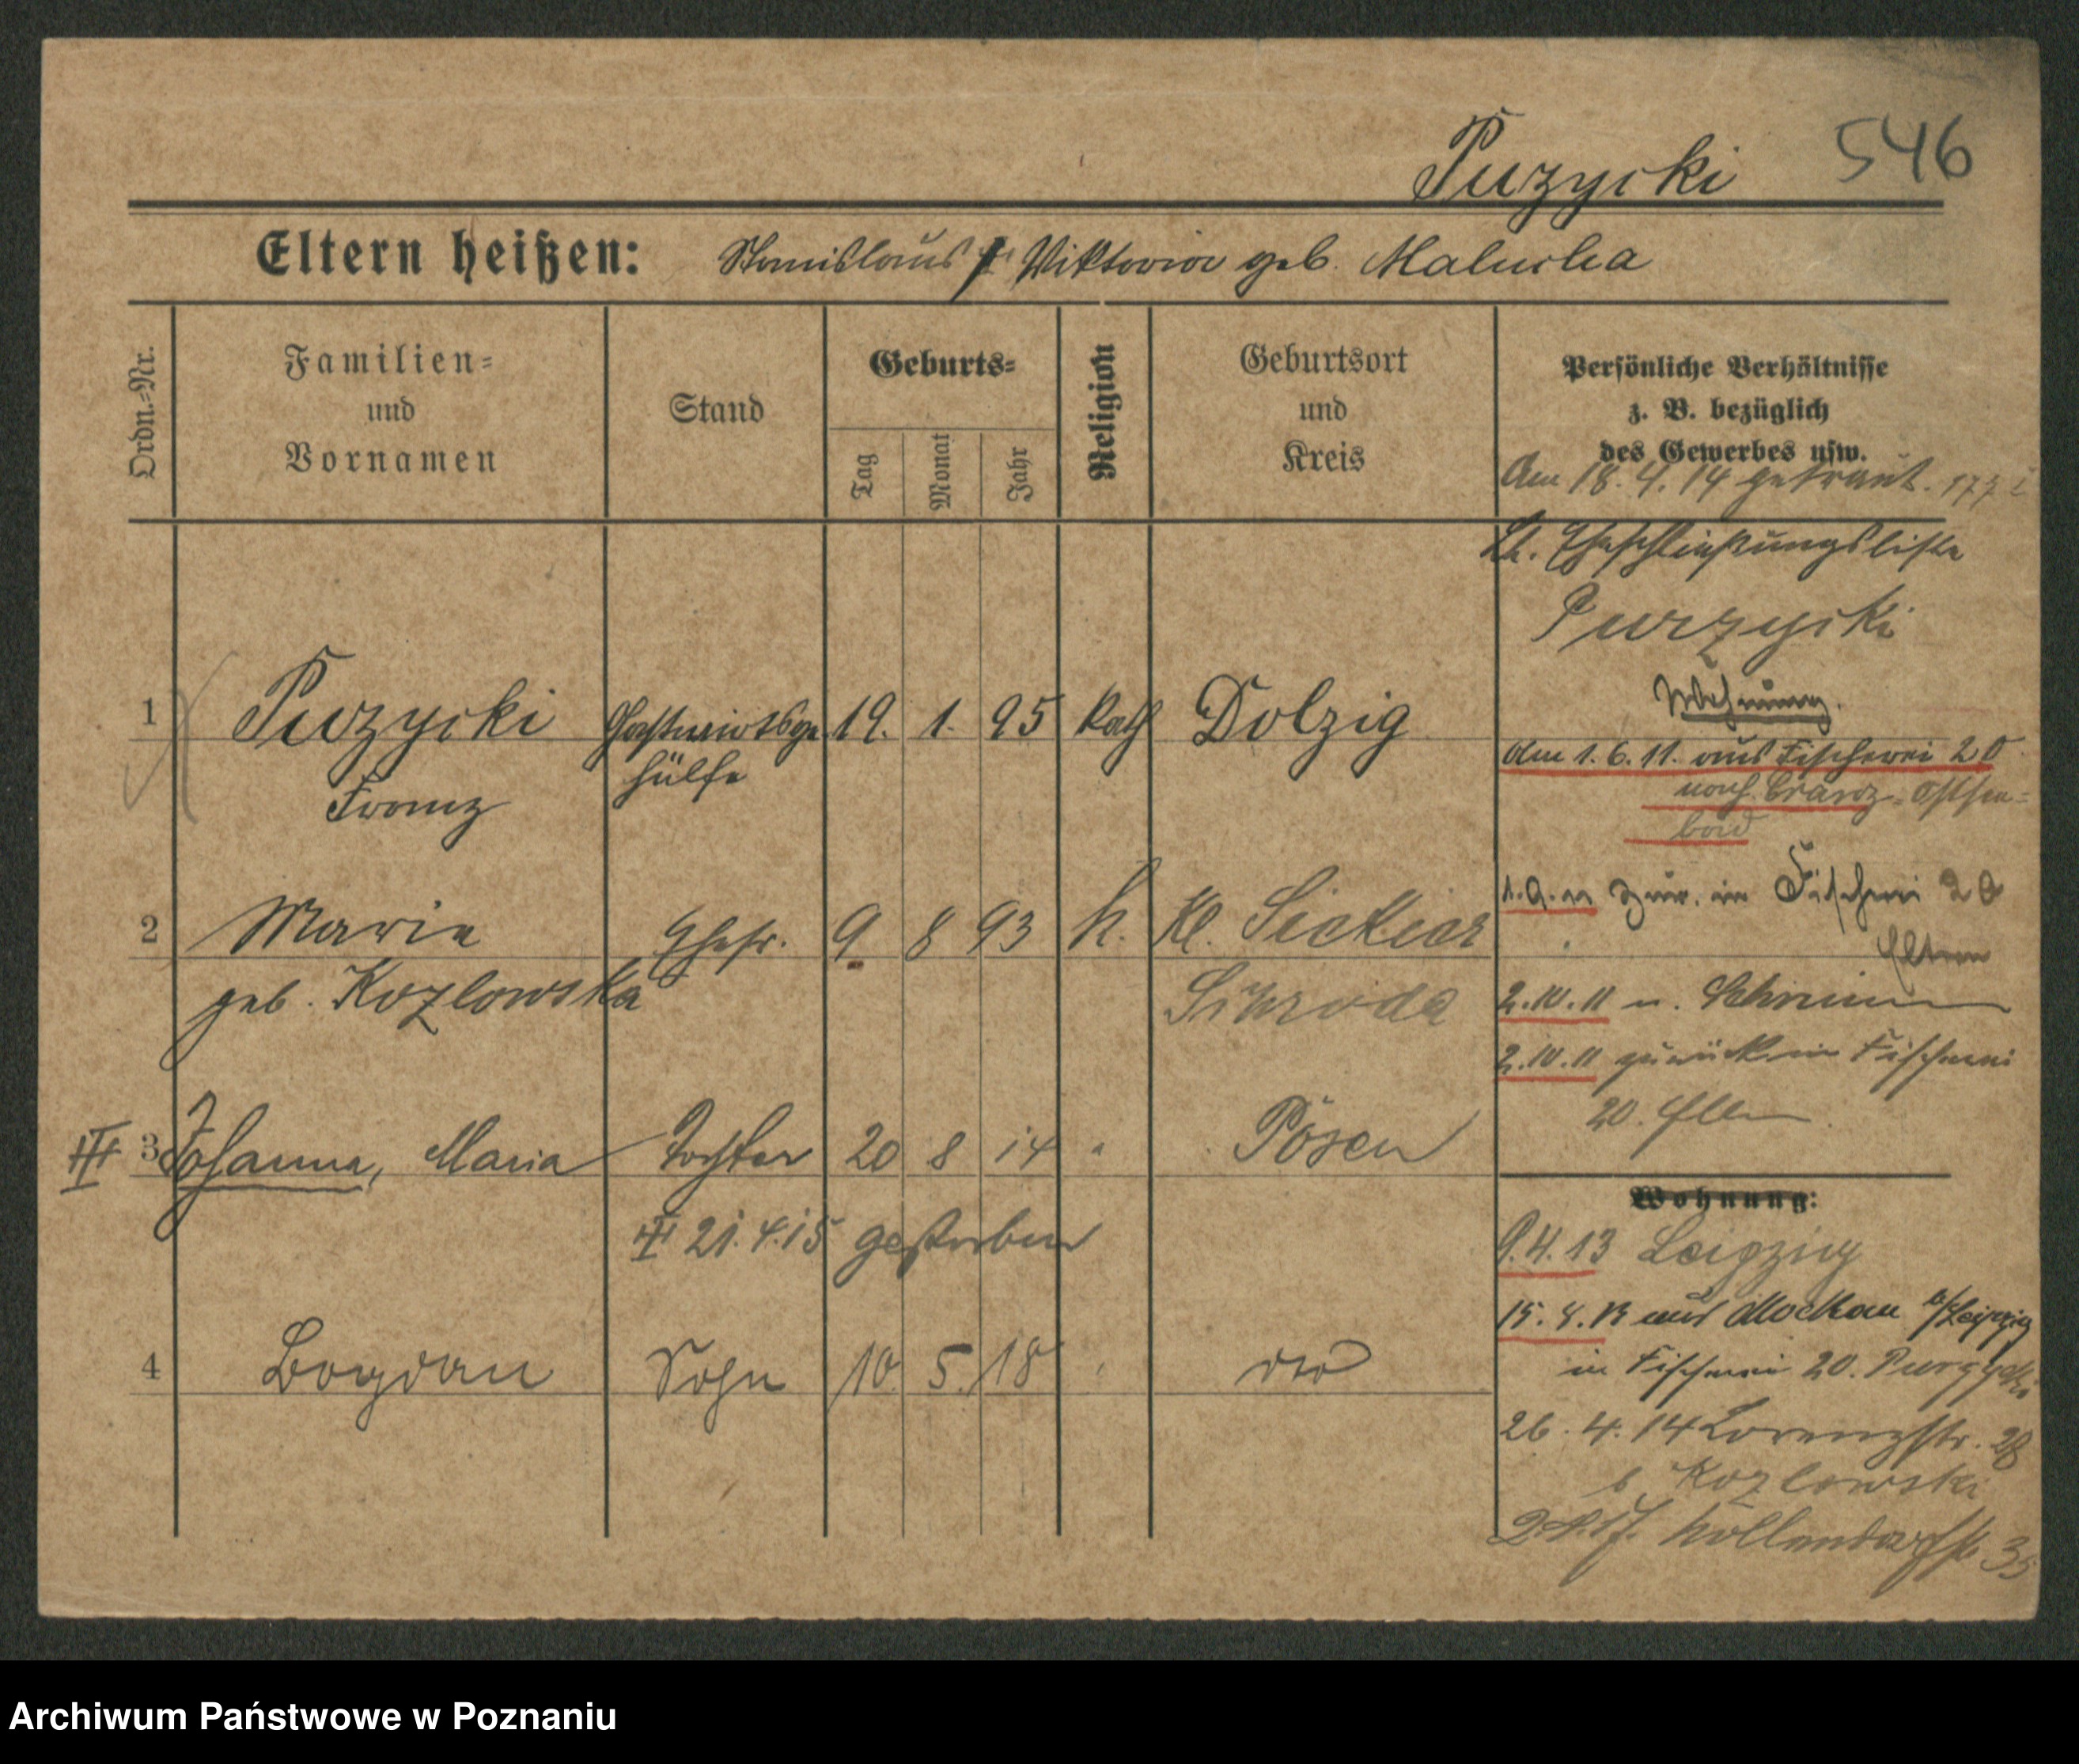 Puzycki 546
Eltern heißen: Stanislaus Viktoria geb. Malucha
Ordn.-Nr.
Familien=
und
Vornamen
Stand
Geburts=
Tag
Monat
Jahr
Religion
Geburtsort
und
Kreis
Persönliche Verhältnisse
z. B. bezüglich
des Gewerbes usw.
Am 18. 4. 14 getraut.
Lt. Eheschließungsliste
Purzycki
Wohnung.
1 Puzycki Gastwirtsge 19. 1. 95 Kath Dolzig
Franz hülfe
Am 1. 6. 11. aus Fischerei 20
nach Cranz - Ostsee-
bad
2 Marie Ehefr. 9 8 93 k. Kl.
geb. Kozlowska Schroda
zur. in Fischerei 20
Eltern
2. 10. 11 n. Schrimm
2. 10. 11 zurück in Fischerei
20. Eltern
III 3 Johanna, Maria Tochter 20 8 14 " Posen
21. 4. 15 gestorben
Wohnung:
9. 4. 13 Leipzig
aus Mockau b/Leipzig
in Fischerei 20. Purzycki
4 Bogdan Sohn 10. 5. 18 dto
26. 4. 14 Lorenzstr. 28
b Kozlowski
Nollendorfstr. 35
Archiwum Państwowe w Poznaniu